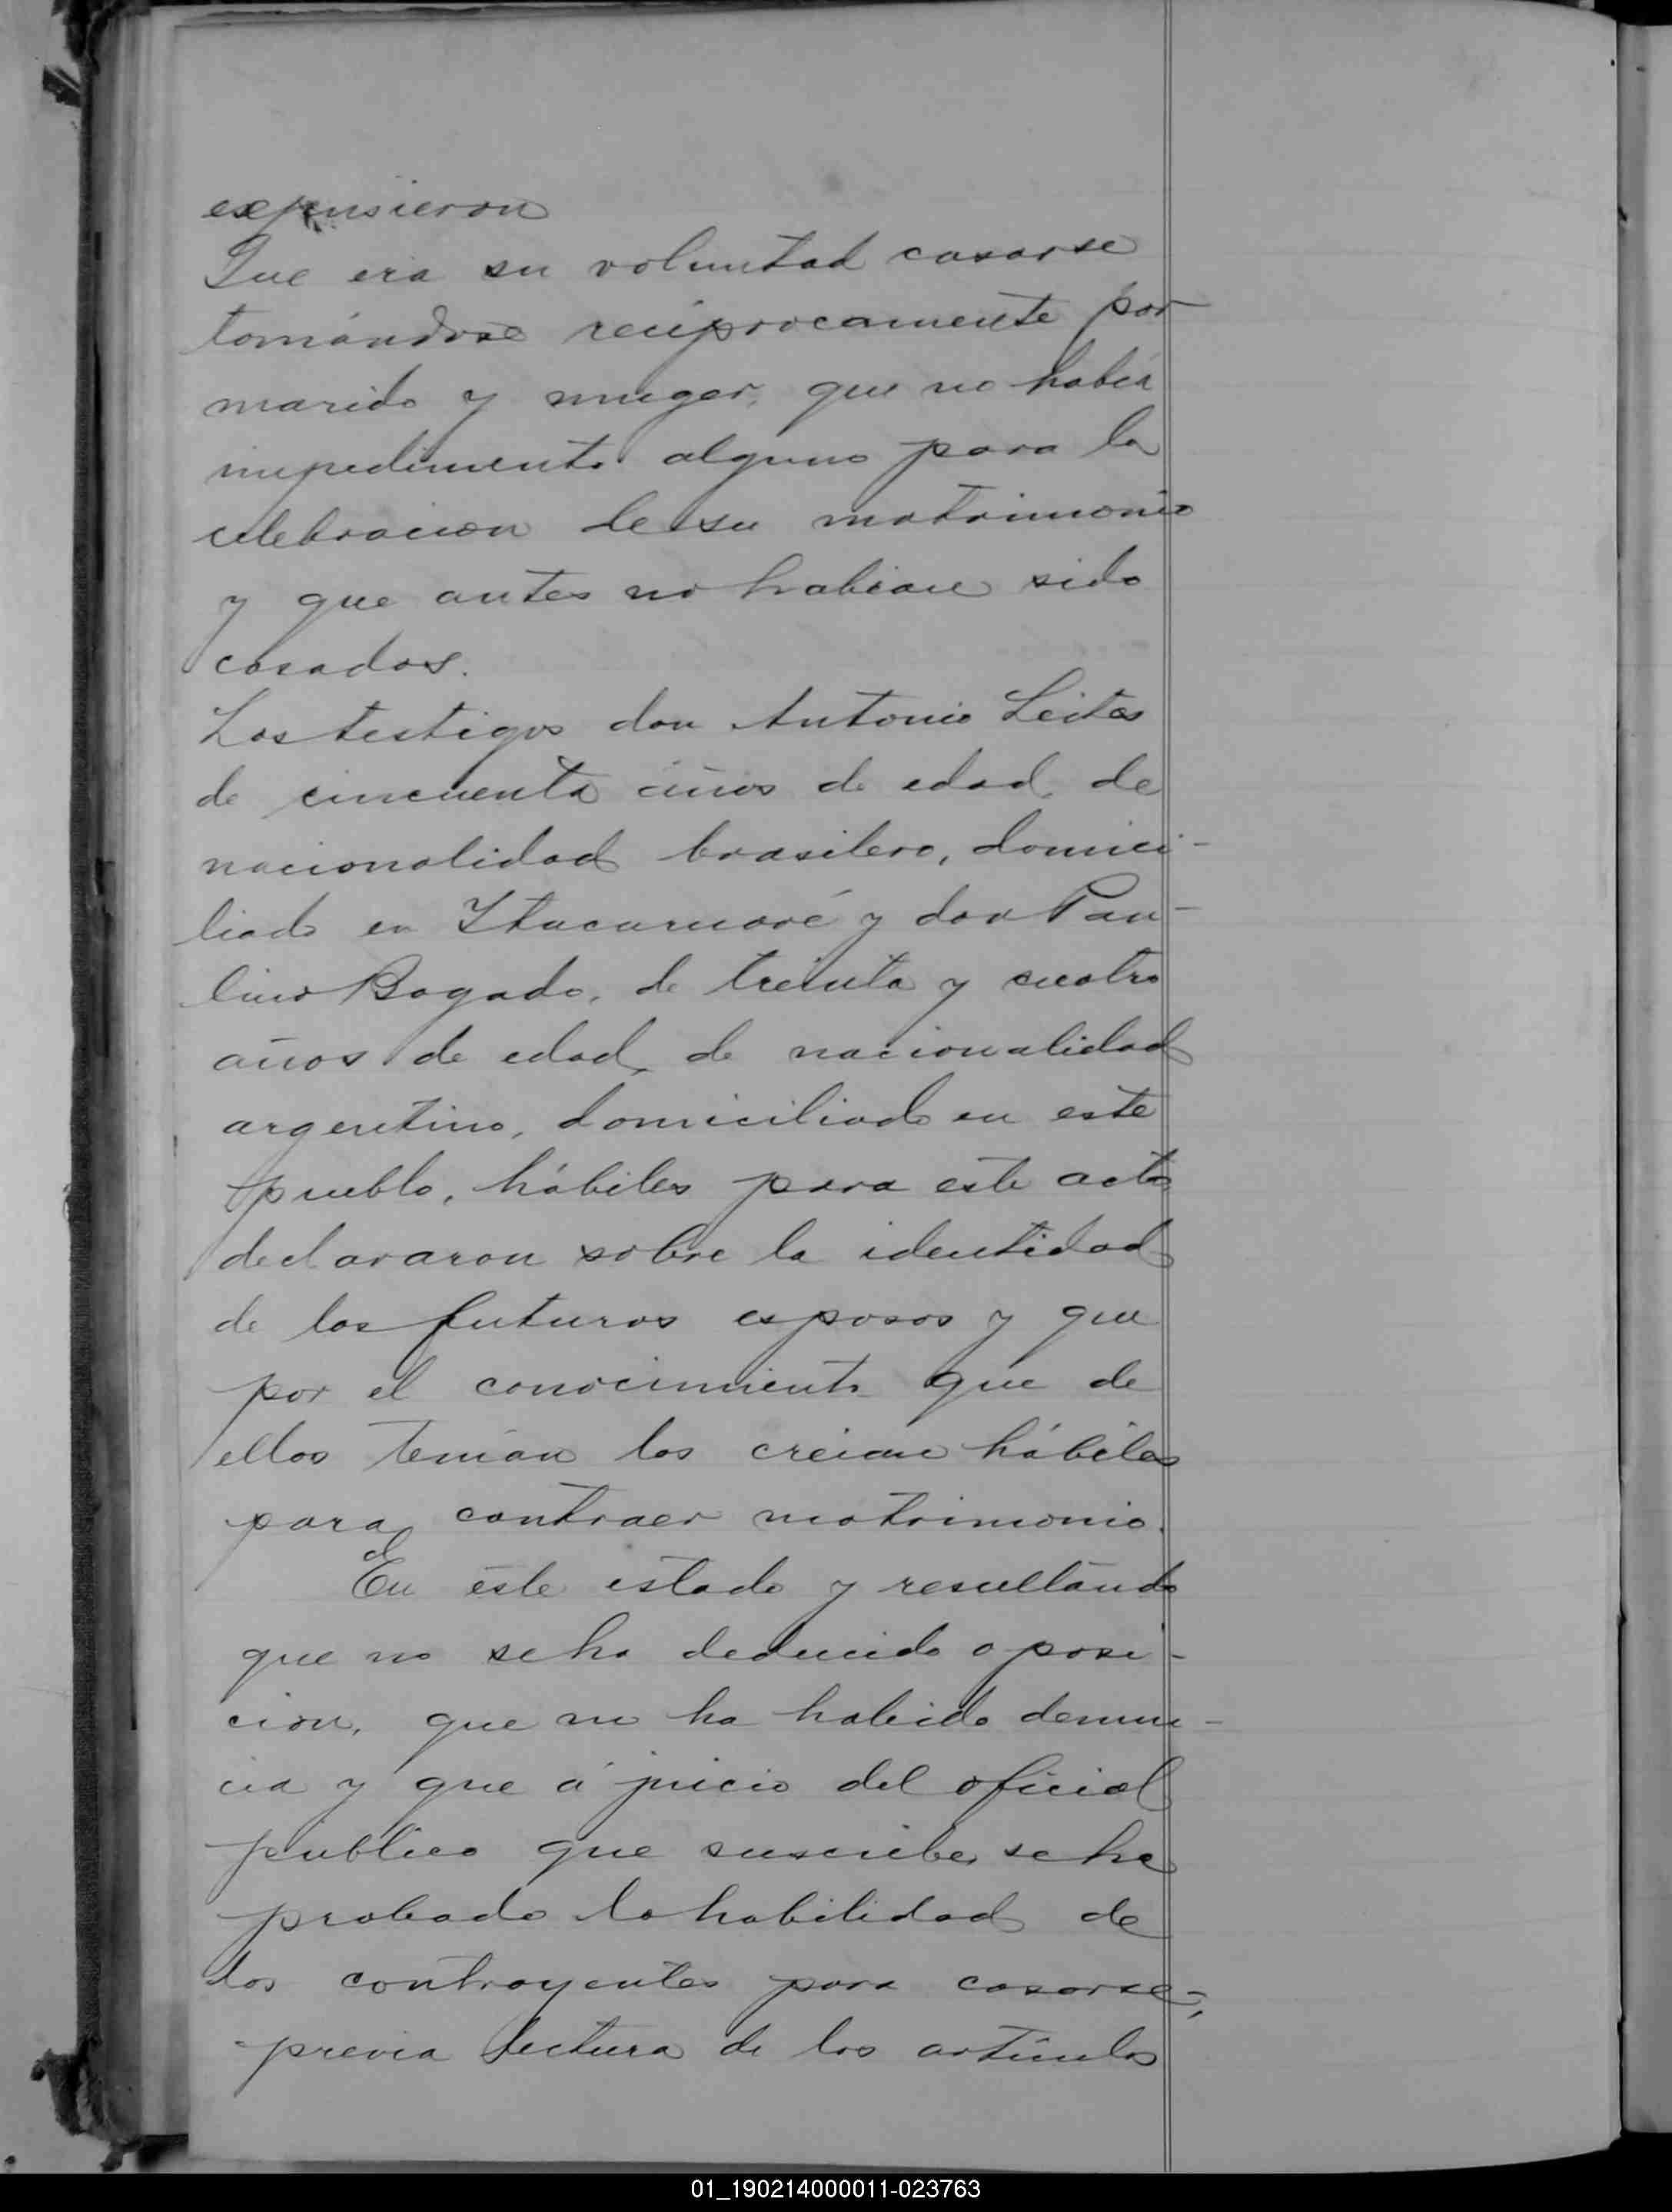 expusieron
Que era su voluntad casarse
tomándose reciprocamente por
marido y muger, que no había
impedimento alguno para la
celebracion de su matrimonio
y que antes no habian sido
casados.
Los testigos don Antonio Leites
de cincuenta años de edad, de
nacionalidad brasilero, domici-
liado en Itacaruaré y don Pau-
lino Bogado, de treinta y cuatro
años de edad, de nacionalidad
argentino, domiciliado en este
pueblo, hábiles para este acto,
declararon sobre la identidad
de los futuros esposos y que
por el conocimiento que de
ellos tenian los creian hábiles
para contraer matrimonio.
En este estado y resultando
que no se ha deducido oposi-
cion, que no ha habido denun-
cia y que á juicio del oficial
público que suscribe, se ha
probado la habilidad de
los contrayentes para casarse,
previa lectura de los artículos
01_190214000011-023763